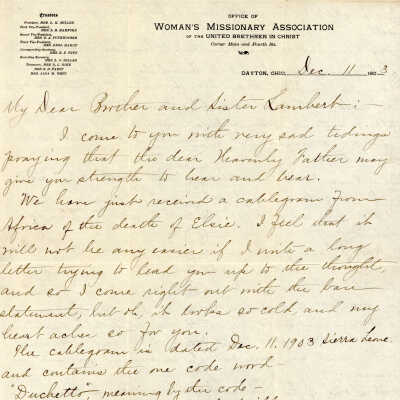 Trustees
OFFICE OF
WOMAN'S MISSIONARY ASSOCIATION
OF THE UNITED BRETHREN IN CHRIST
Corner Main and Fourth Sts.
DAYTON, OHIO, Dec. 11 1903
My Dear Brother and Sister Lambert:-
I come to you with very sad tidings
praying that the dear Heavenly Father may
give you strength to hear and bear.
We have just received a cablegram from
Africa of the death of Elsie. I feel that it
will not be any easier if I write a long
letter trying to lead you up to the thought,
and so I come right out with the bare
statement, but oh, it looks so cold, and my
heart aches so for you.
The cablegram is dated Dec. 11, 1903 Sierra Leone
and contains the one code word—
"Duchetto", meaning by the code—